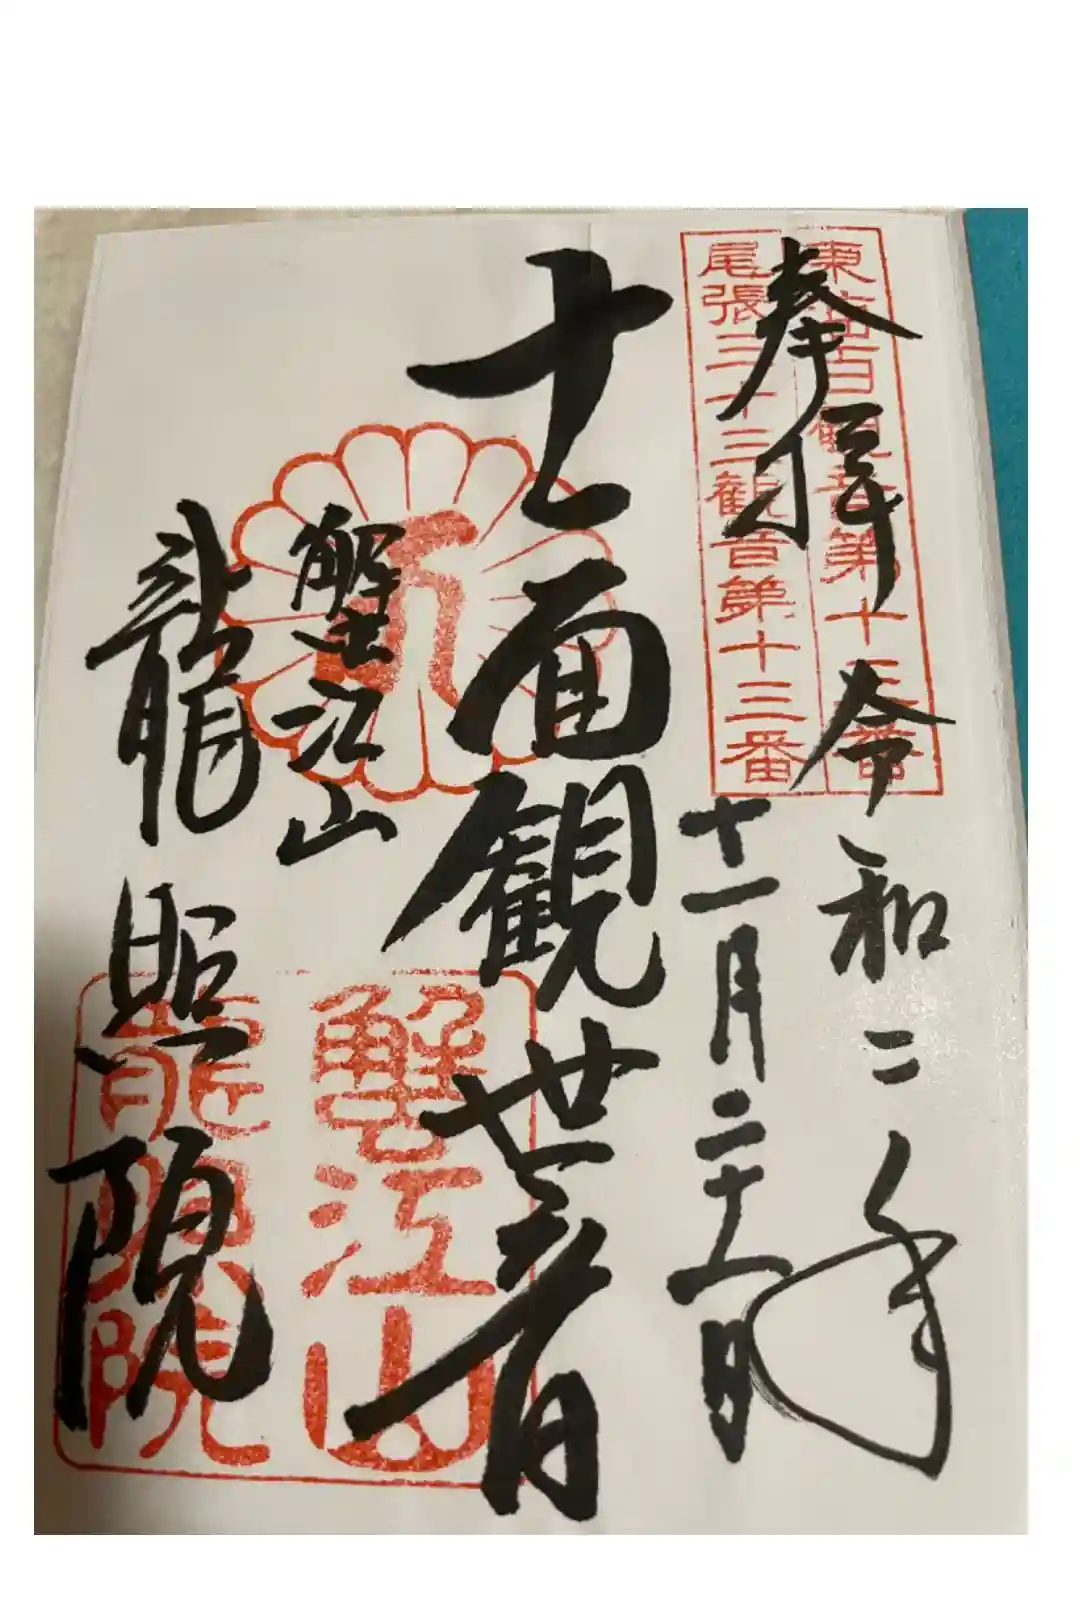 奉拝
令和二年
東海百観音第十三番
尾張三十三観音第十三番
十一月二十一日
十一面観世音
蟹江山
龍照院
蟹江山
龍照院